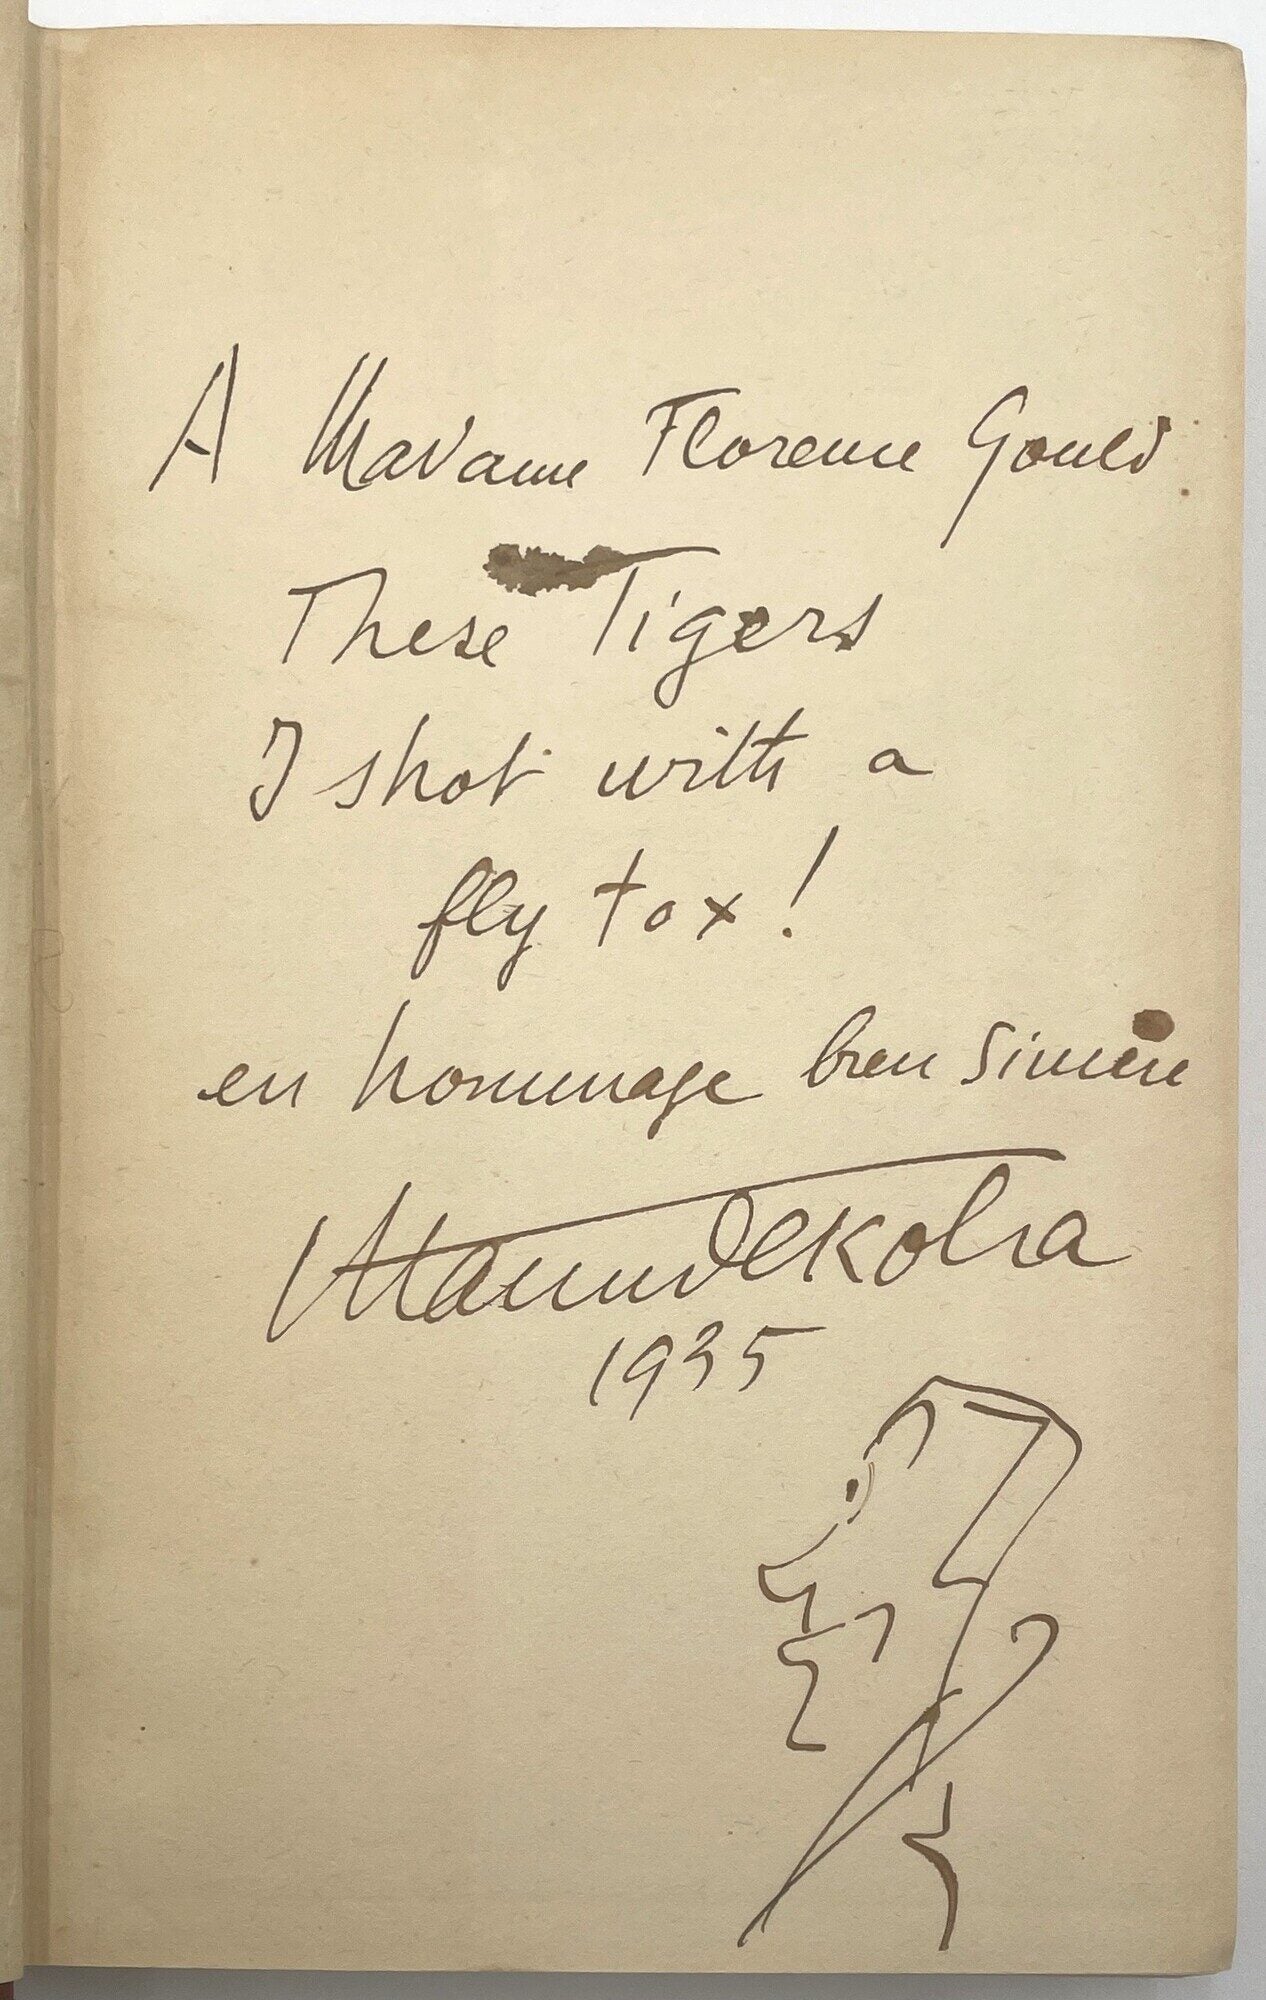 A Madame Florence Gould
These Tigers
I shot with a
fly tox!
en hommage bien sincère
Maurice Dekobra
1935